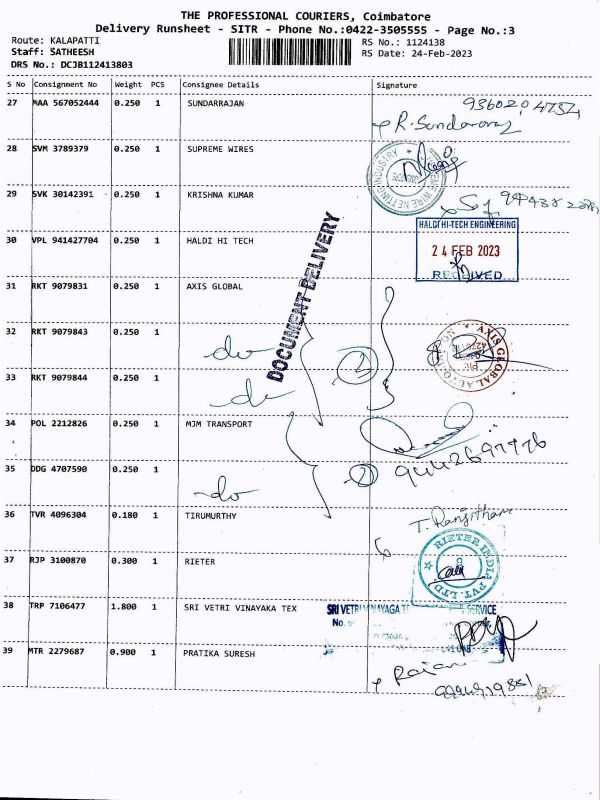 THE PROFESSIONAL COURIERS, Coimbatore
Delivery Runsheet - SITR - Phone No.:0422-3505555 - Page No.:3
Route: KALAPATTI
RS No.: 1124138
Staff: SATHEESH
RS Date: 24-Feb-2023
DRS No.: DCJB112413803
S No Consignment No Weight PCS Consignee Details Signature
27 MAA 567052444 0.250 1 SUNDARRAJAN
R. Sundararaj
28 SVM 3789379 0.250 1 SUPREME WIRES
29 SVK 30142391 0.250 1 KRISHNA KUMAR
30 VPL 941427704 0.250 1 HALDI HI TECH
HALDI HI-TECH ENGINEERING
24 FEB 2023
RECEIVED
DOCUMENT DELIVERY
31 RKT 9079831 0.250 1 AXIS GLOBAL
32 RKT 9079843 0.250 1 do
AXIS GLOBAL AUTOMATION
33 RKT 9079844 0.250 1 do
34 POL 2212826 0.250 1 MJM TRANSPORT
35 DDG 4707590 0.250 1 do 2
9442697776
36 TVR 4096304 0.180 1 TIRUMURTHY
T. Ranjitham
37 RJP 3100870 0.300 1 RIETER
RIETER INDIA PVT. LTD
38 TRP 7106477 1.800 1 SRI VETRI VINAYAKA TEX
SRI VETRI SERVICE
No.
39 MTR 2279687 0.900 1 PRATIKA SURESH
Rajan